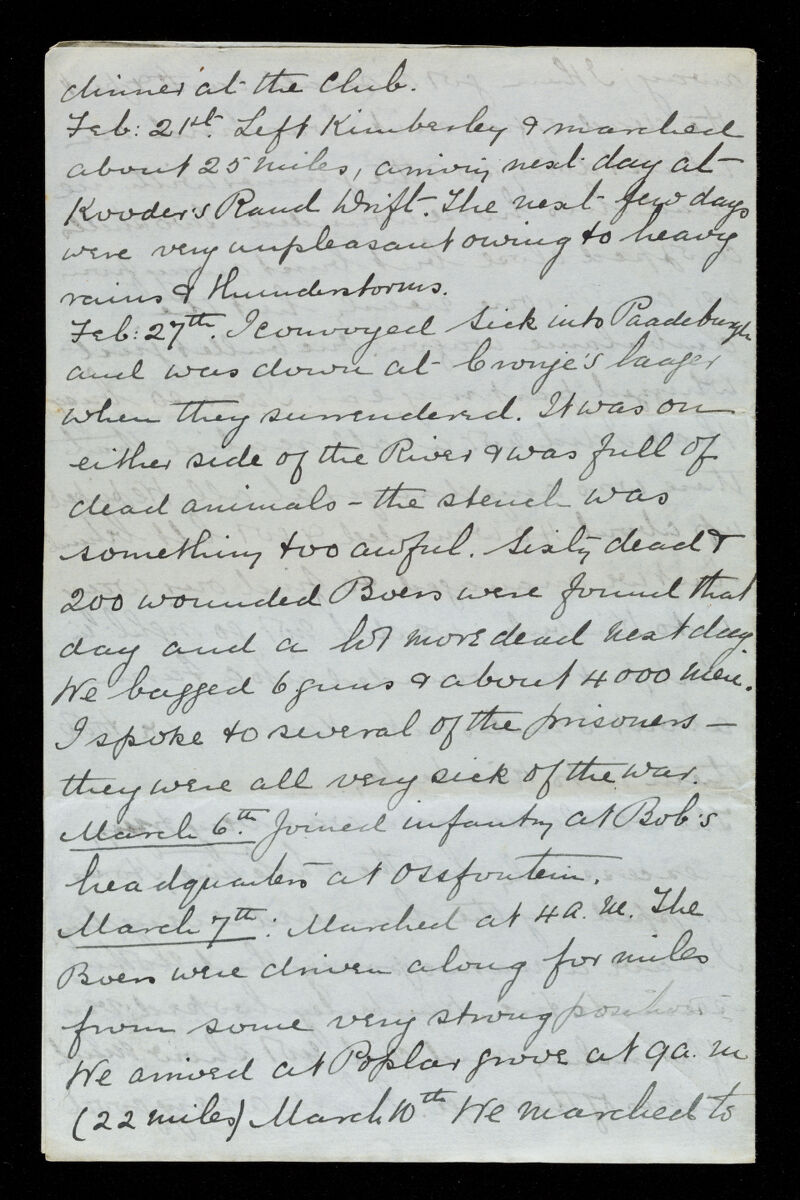 dinner at the Club.
Feb: 21st. Left Kimberley & marched
about 25 miles, arriving next day at
Kooder's Rand Drift. The next few days
were very unpleasant owing to heavy
rains & thunderstorms.
Feb: 27th. I convoyed sick into Paadeburgh
and was down at Cronje's laager
when they surrendered. It was on
either side of the River & was full of
dead animals – the stench was
something too awful. Sixty dead &
200 wounded Boers were found that
day and a lot more dead next day.
We bagged 6 guns & about 4000 men.
I spoke to several of the prisoners –
they were all very sick of the war.
March 6th. Joined infantry at Bob's
headquarters at Ossfontein.
March 7th: Marched at 4 a.m. The
Boers were driven along for miles
from some very strong positions
We arrived at Poplar grove at 9 a.m
(22 miles) March 10th We marched to